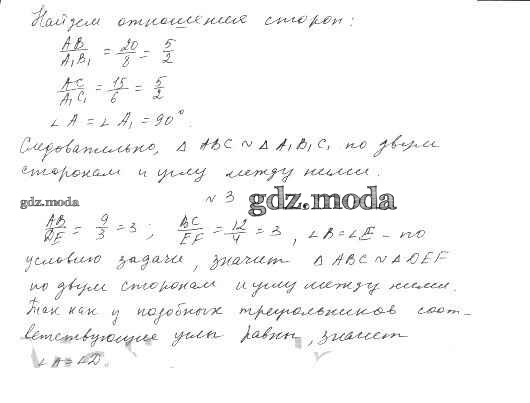 Найдем отношения сторон:
AB/A₁B₁ = 20/8 = 5/2
AC/A₁C₁ = 15/6 = 5/2
∠A = ∠A₁ = 90°.
Следовательно, △ABC ~ △A₁B₁C₁ по двум
сторонам и углу между ними.
gdz.moda
№3 gdz.moda
AB/DE = 9/3 = 3; BC/EF = 12/4 = 3, ∠B=∠E – по
условию задачи, значит △ABC ~ △DEF
по двум сторонам и углу между ними.
Так как у подобных треугольников соот-
ветствующие углы равны, значит
∠A=∠D.